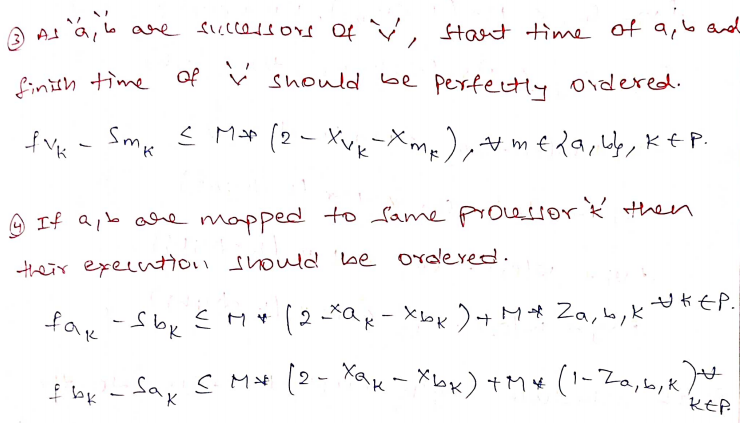 ③ As "a", "b" are successors of "v", start time of a, b and
finish time of "v" should be perfectly ordered.
fvₖ - Smₖ ≤ M * (2 - Xvₖ - Xmₖ), ∀ m ∈ {a, b}, K ∈ P.
④ If a, b are mapped to same processor 'k' then
their execution should be ordered.
faₖ - Sbₖ ≤ M * (2 - Xaₖ - Xbₖ) + M * Za,b,k ∀ k ∈ P.
fbₖ - Saₖ ≤ M * (2 - Xaₖ - Xbₖ) + M * (1 - Za,b,k) ∀
K ∈ P.